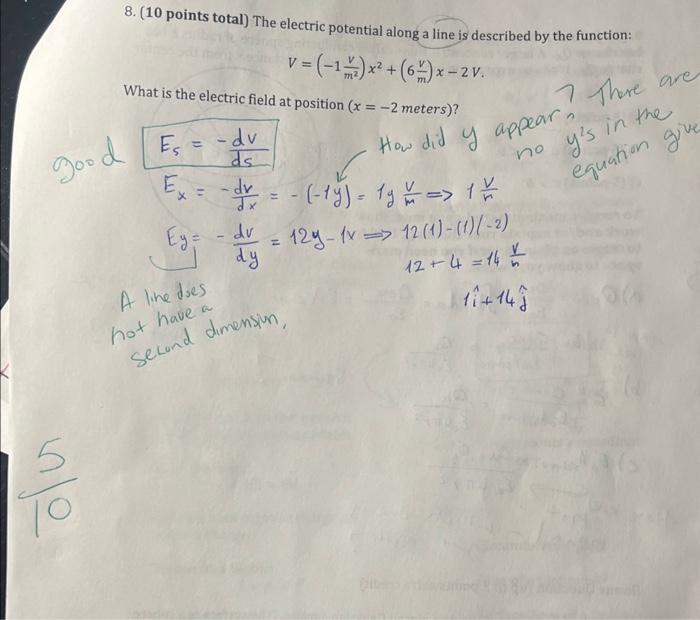 8. (10 points total) The electric potential along a line is described by the function:
V = (-1 V/m²) x² + (6 V/m) x - 2 V.
What is the electric field at position (x = -2 meters)?
good
E_s = -dv/ds
How did y appear? There are
no y's in the
equation give
E_x = -dv/dx = -(-1y) = 1y V/m => 1 V/m
E_y = -dv/dy = 12y - 1x => 12(1) - (1)(-2)
12 + 4 = 14 V/m
1î + 14ĵ
A line does
not have a
second dimension.
5/10